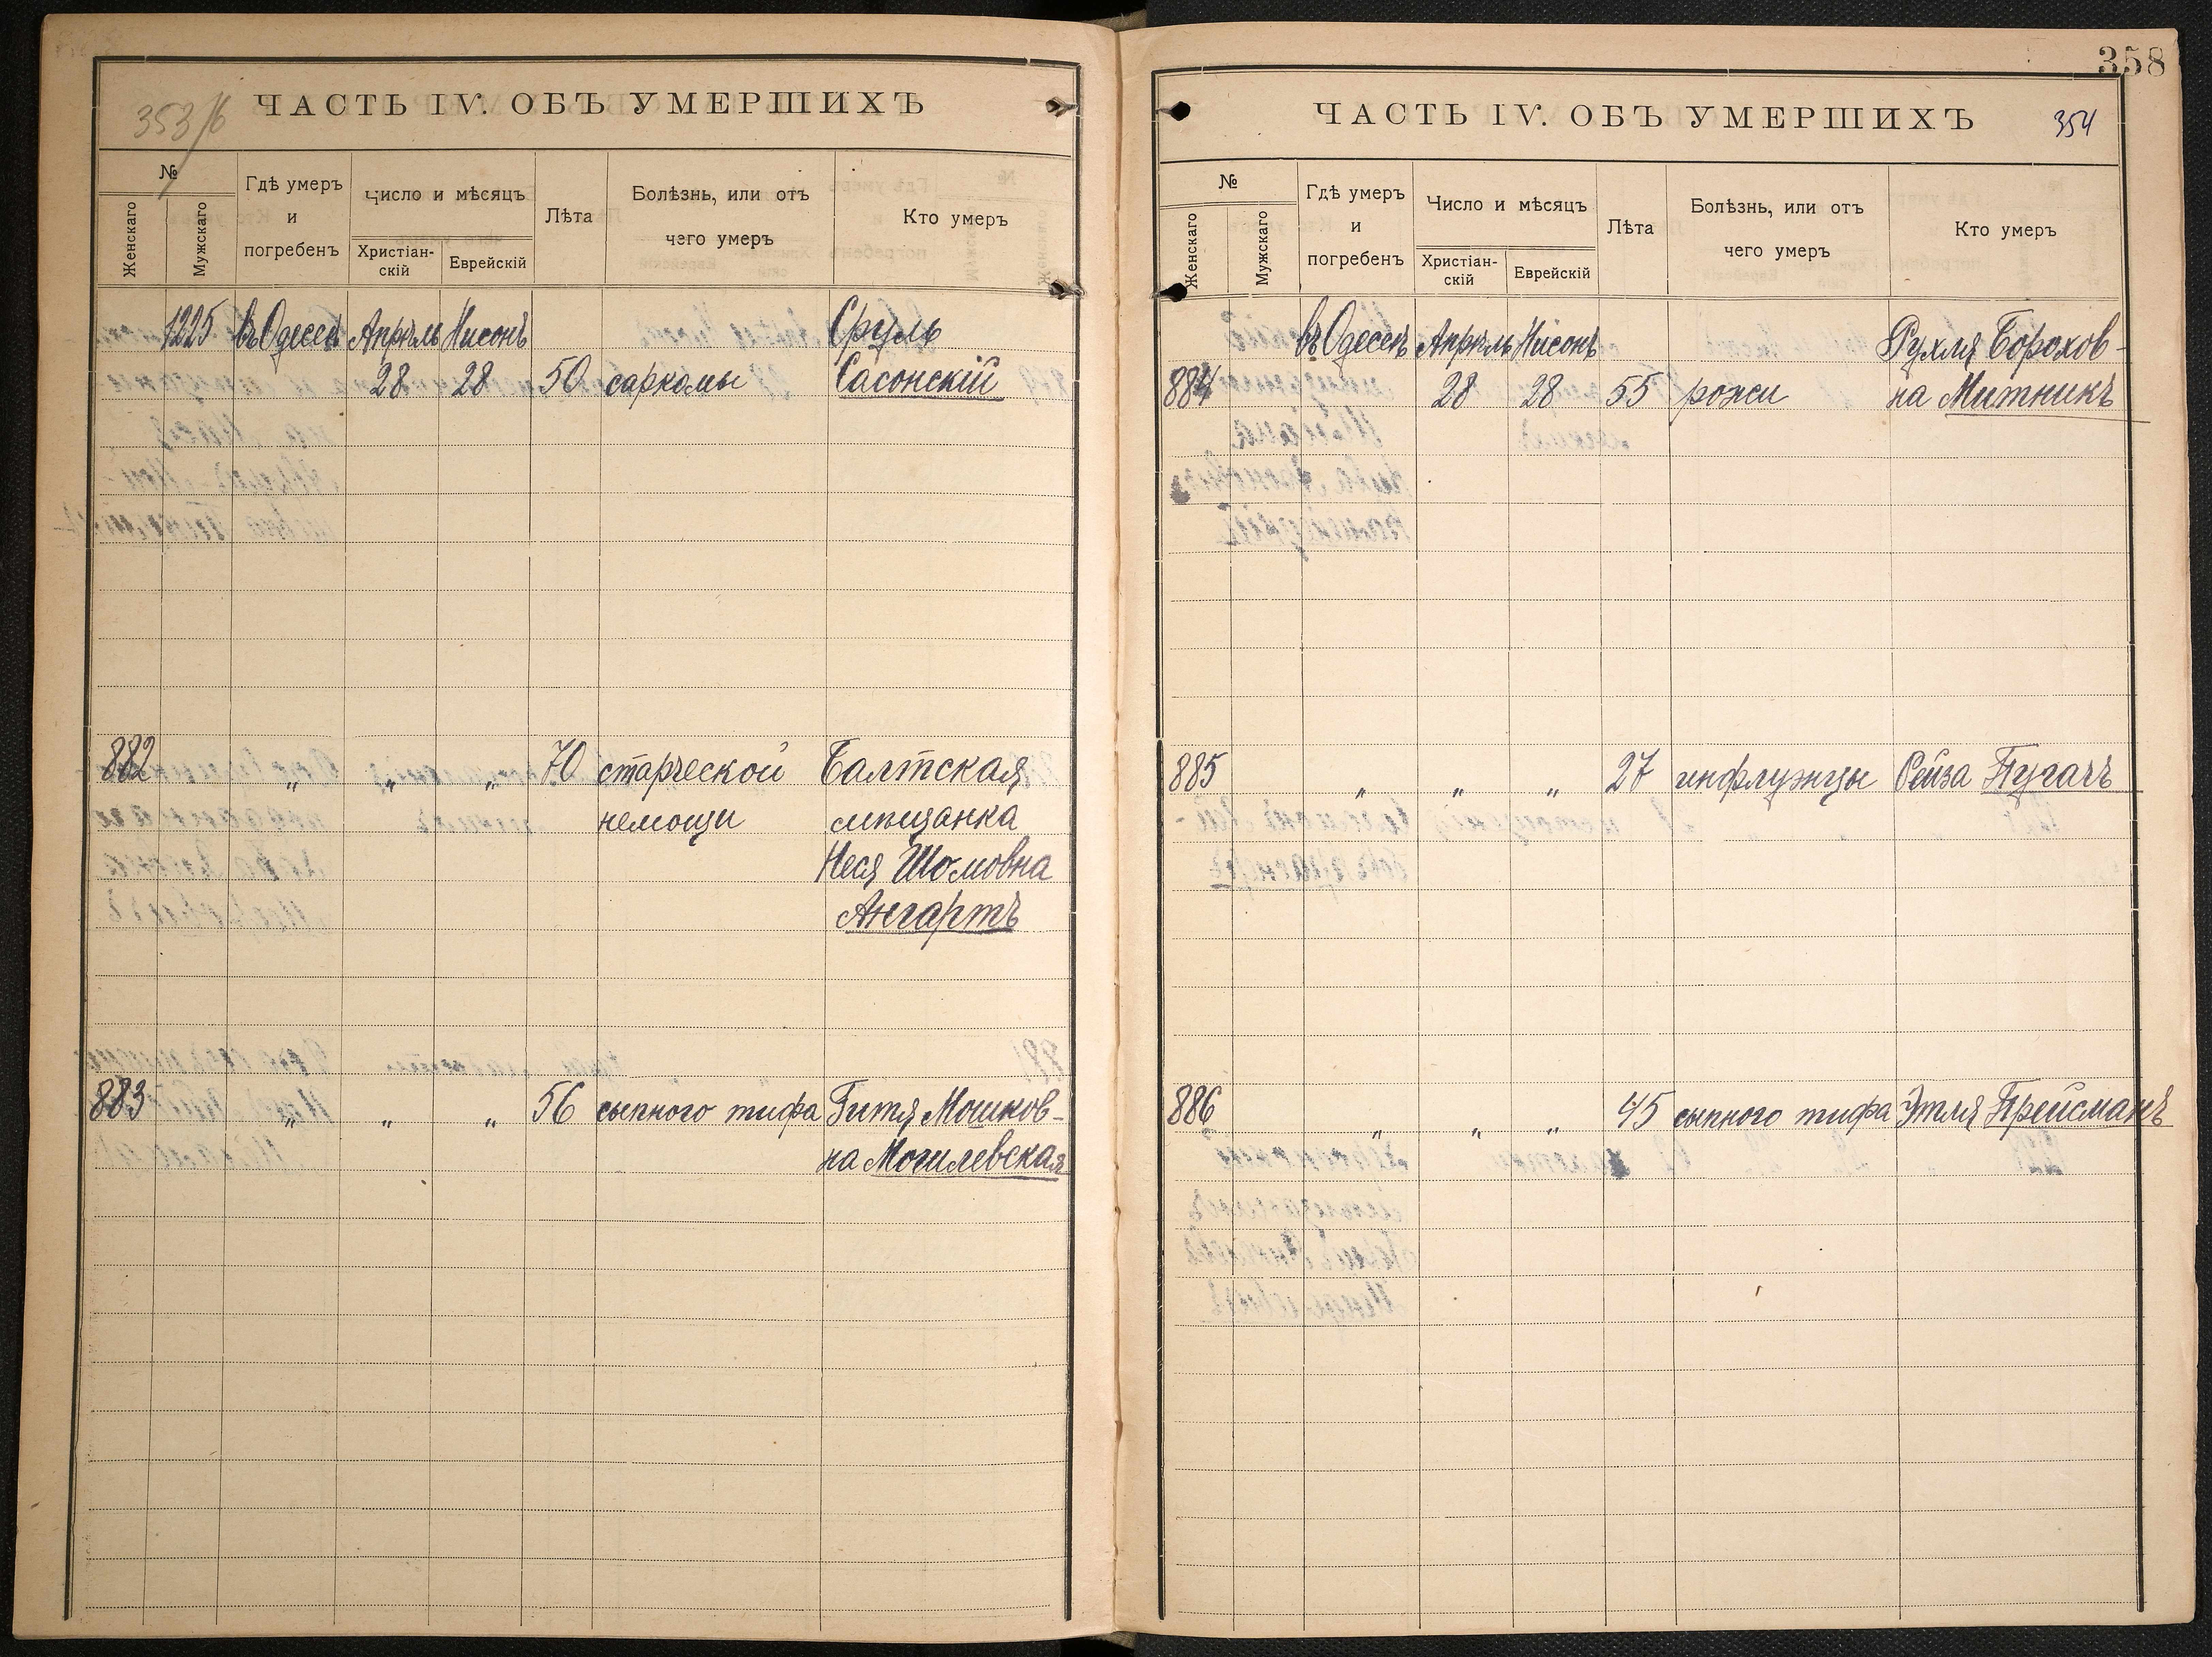 353/б
ЧАСТЬ IV. ОБЪ УМЕРШИХЪ
№
Женскаго
Мужскаго
Гдѣ умеръ
и
погребенъ
Число и мѣсяцъ
Христіан-
скій
Еврейскій
Лѣта
Болѣзнь, или отъ
чего умеръ
Кто умеръ
1225 въ Одессѣ Апрѣль Нисонъ Сруль
28 28 50 саркомы Сасонскій
882 „ „ „ 70 старческой Балтская
немощи мѣщанка
Неся Шомовна
Ангартъ
883 „ „ „ 56 сыпного тифа Гитя Мошков-
на Могилевская
358
ЧАСТЬ IV. ОБЪ УМЕРШИХЪ
354
№
Женскаго
Мужскаго
Гдѣ умеръ
и
погребенъ
Число и мѣсяцъ
Христіан-
скій
Еврейскій
Лѣта
Болѣзнь, или отъ
чего умеръ
Кто умеръ
въ Одессѣ Апрѣль Нисонъ Рухля Борохов-
884 28 28 55 рожи на Митникъ
885 „ „ „ 27 инфлуэнцы Рейза Пугачъ
886 „ „ „ 45 сыпного тифа Этля Прейсманъ